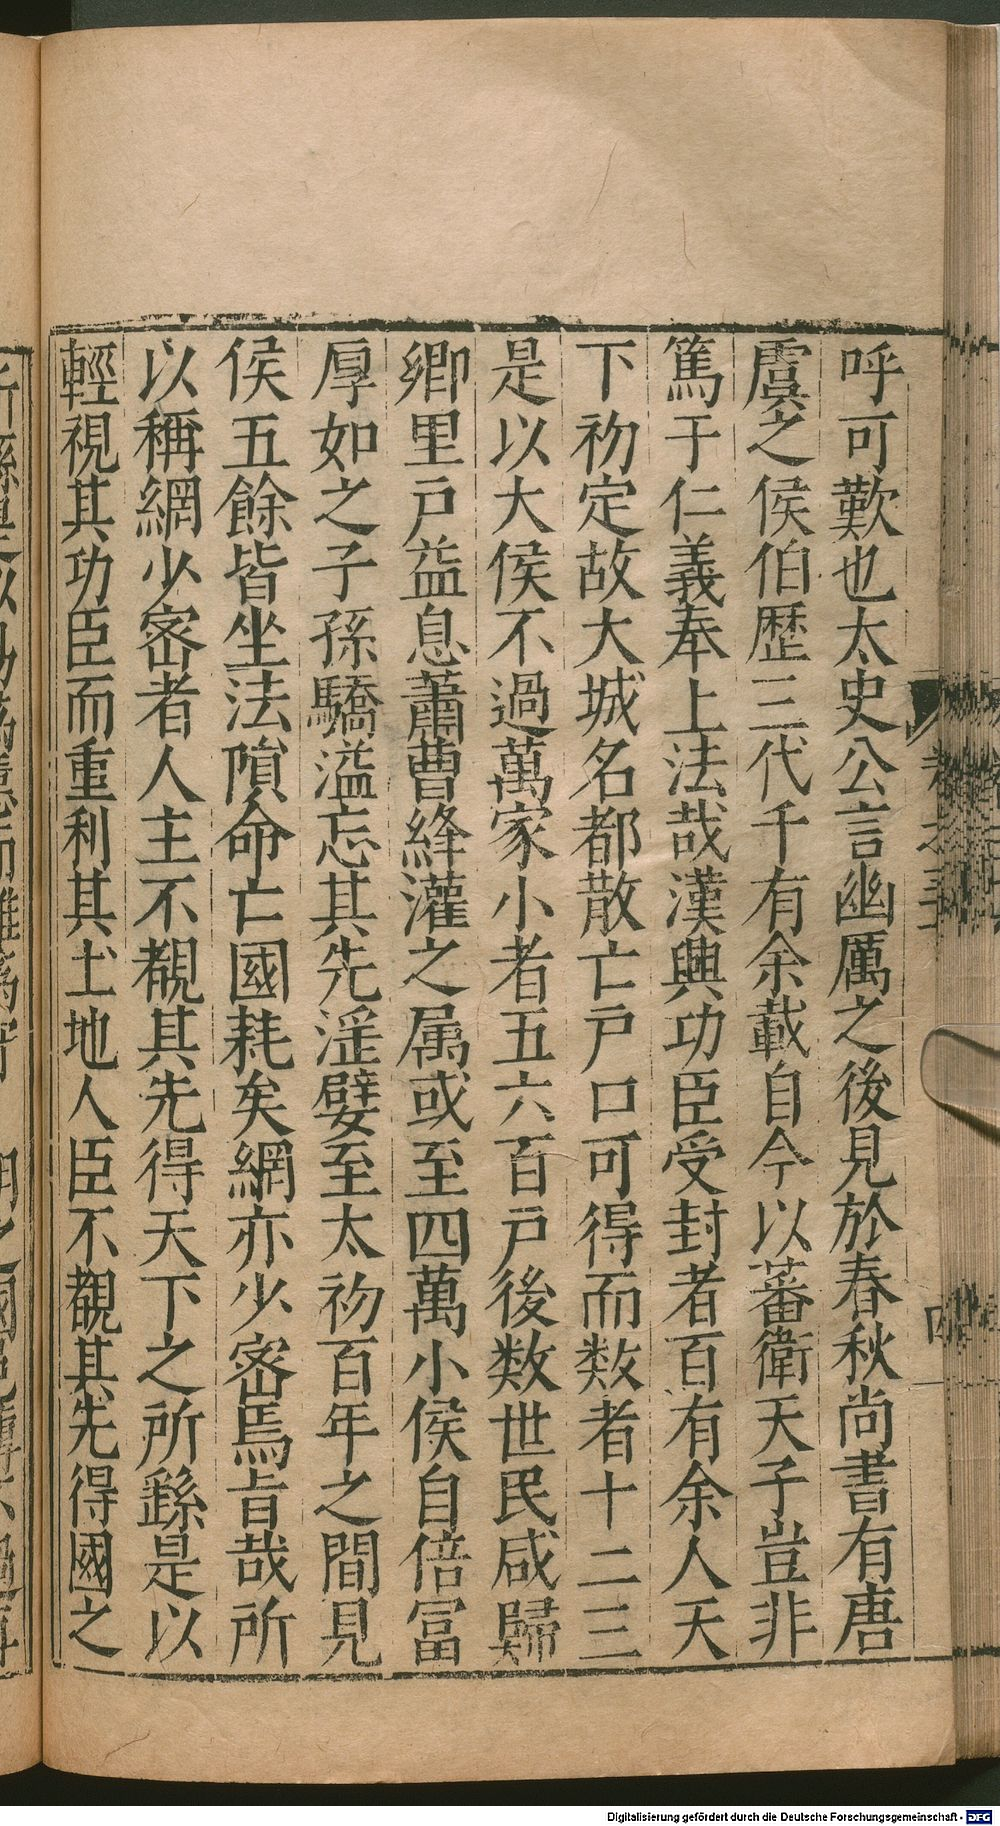 呼可歎也太史公言幽厲之後見於春秋尚書有唐
虞之侯伯歴三代千有余載自今以蕃衛天子豈非
篤于仁義奉上法哉漢興功臣受封者百有余人天
下初定故大城名都散亡戸口可得而数者十二三
是以大侯不過萬家小者五六百戸後数世民咸歸
鄉里戸益息蕭曹絳灌之属或至四萬小侯自倍冨
厚如之子孫驕溢忘其先淫嬖至太初百年之間見
侯五餘皆坐法隕命亡國耗矣網亦少宻焉旨哉所
以稱網少宻者人主不覩其先得天下之所繇是以
輕視其功臣而重利其土地人臣不觀其先得國之
四
Digitalisierung gefördert durch die Deutsche Forschungsgemeinschaft - DFG